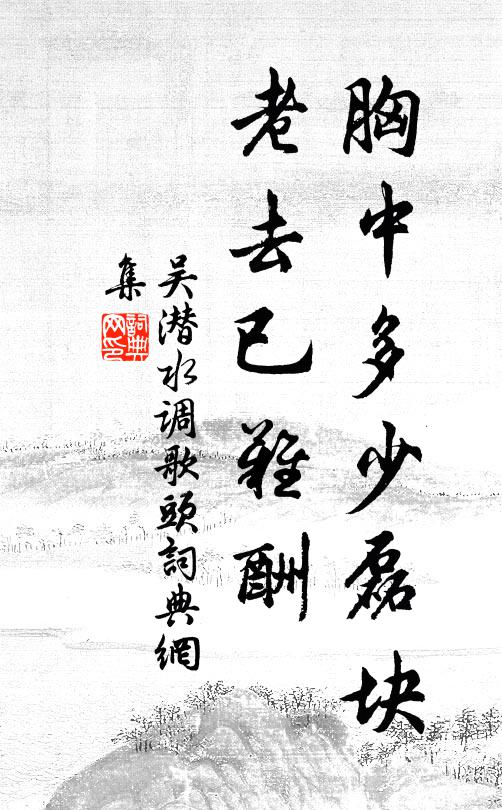 胸中多少磊块
老去已難酬
吴潜水调歌頭詞典網
集
詞典
网印